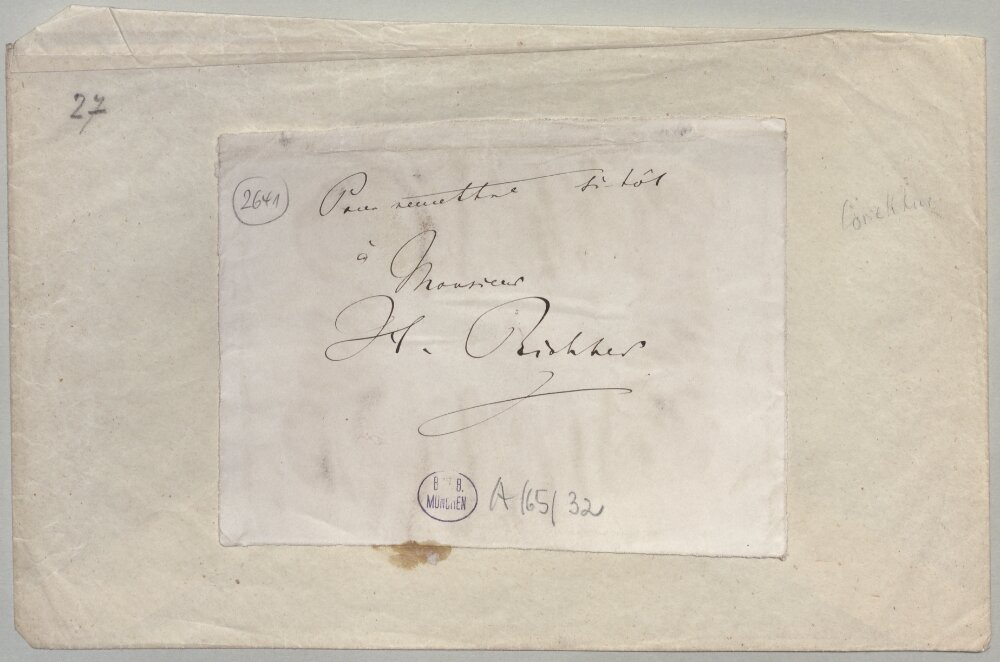 27
2641
Pour remettre si-tôt
à
Monsieur
H. Richter
B B.
MÜNCHEN
A/65/32